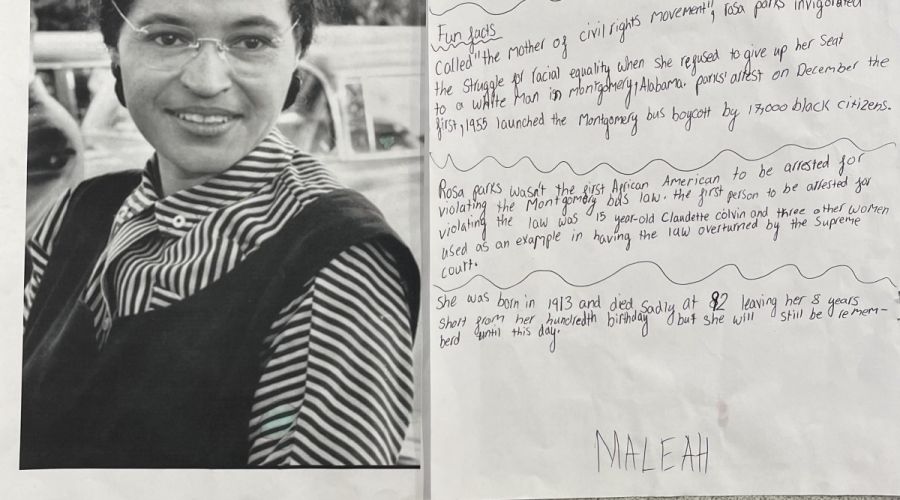 Fun facts
Called "the mother of civil rights movement", rosa parks invigorated
the Struggle for racial equality when she refused to give up her Seat
to a White Man in montgomery, Alabama. parks' arrest on December the
first, 1955 launched the Montgomery bus boycott by 17,000 black citizens.
Rosa parks wasn't the first African American to be arrested for
violating the Montgomery bus law. the first person to be arrested for
violating the law was 15 year-old Claudette colvin and three other women
used as an example in having the law overturned by the Supreme
court.
She was born in 1913 and died Sadly at 92 leaving her 8 years
short from her hundredth birthday but she will still be remem-
berd until this day.
MALEAH